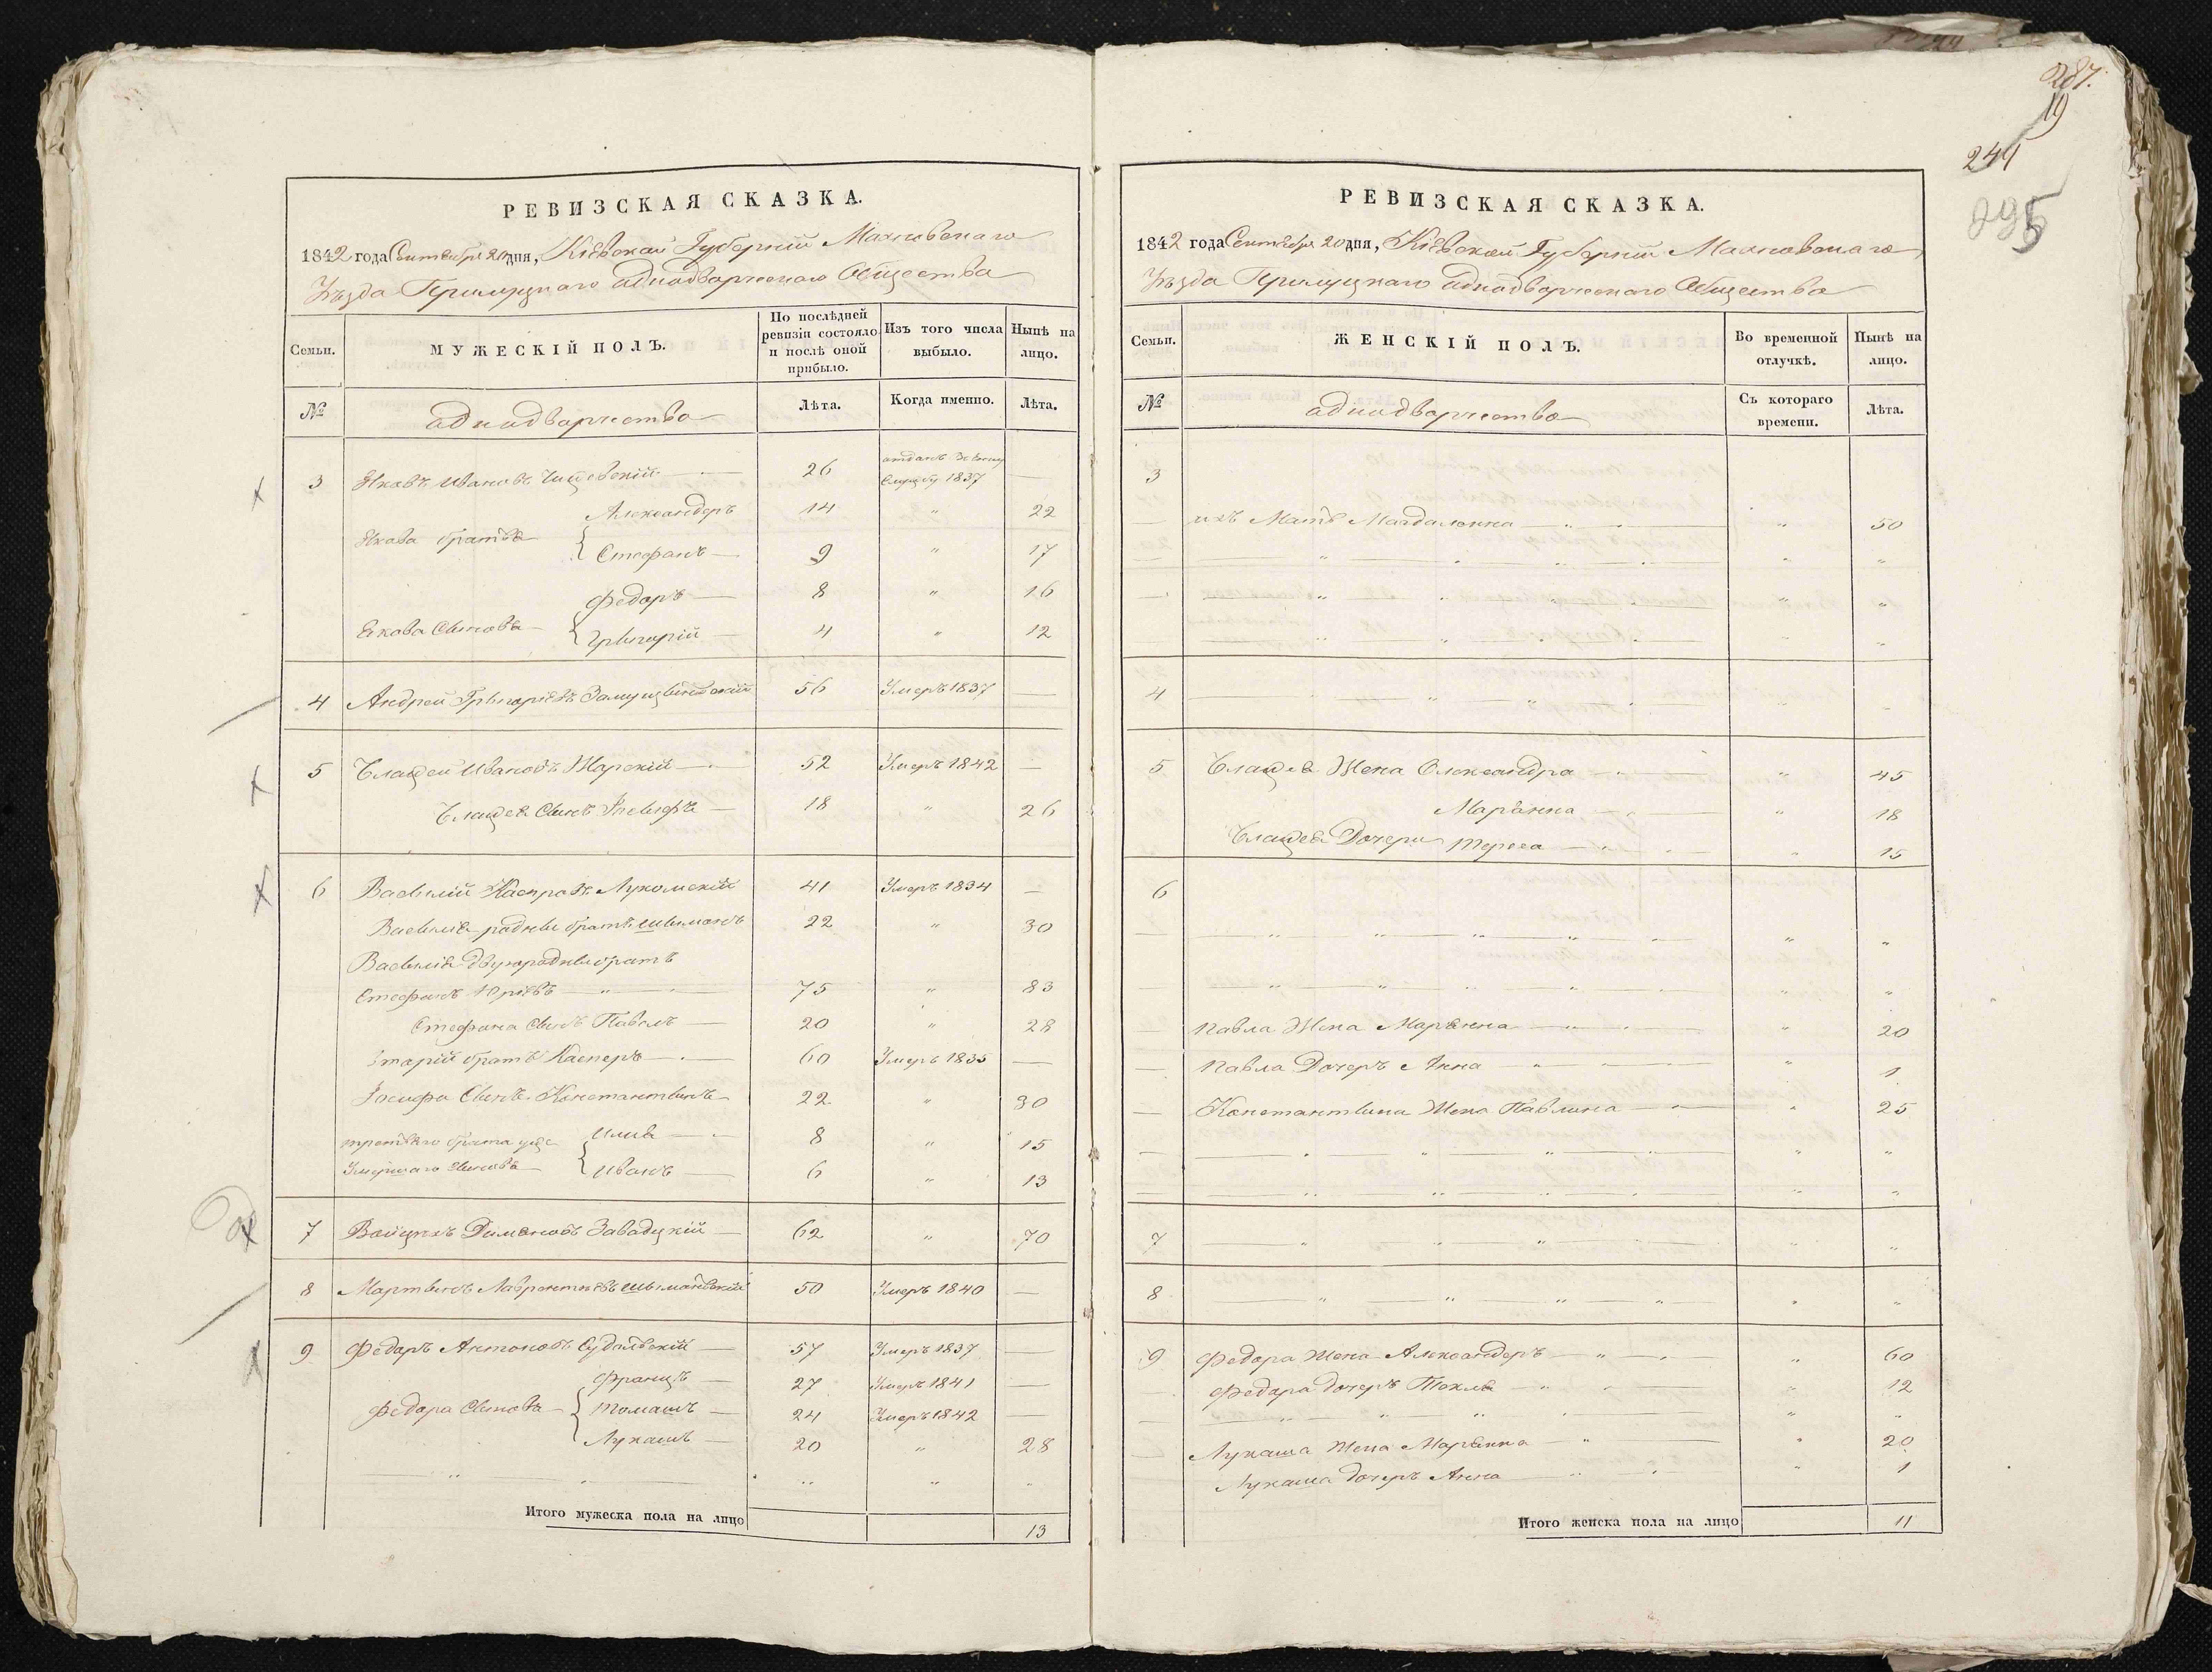 287.
19
244
295
РЕВИЗСКАЯ СКАЗКА.
1842 года Сентября 20 дня, Кіевской Губерніи Махновскаго
Уѣзда Прилуцкаго аднодворческаго Общества
Семьи.
МУЖЕСКІЙ ПОЛЪ.
По послѣдней ревизіи состояло и послѣ оной прибыло.
Изъ того числа выбыло.
Нынѣ на лицо.
№
аднодворчества
Лѣта.
Когда именно.
Лѣта.
3 Яковъ Ивановъ 26 отданъ въ службу 1837 —
Александеръ 14 " 22
Якова братья
Стефанъ — 9 " 17
Федоръ — 8 " 16
Якова Сынов
Грыгорій — 4 " 12
4 Андрей Грыгоріевъ 56 Умеръ 1837 —
5 Ивановъ Жарскій — 52 Умеръ 1842 —
Сынъ 18 " 26
6 Васылій Каспровъ Лукомскій 41 Умеръ 1834 —
Васылія родны братъ Шымонъ 22 " 30
Васылія двуродны братъ
Стефанъ Юріевъ — " — 75 " 83
Стефана Сынъ Павелъ — 20 " 28
братъ Касперъ — 60 Умеръ 1835 —
Іосифа Сынъ Константынъ 22 " 30
третьяго брата уже Илия — 8 " 15
Умершаго Сыновья — Иванъ — 6 " 13
7 Войцехъ Завадцкій — 62 " 70
8 Мартынъ Лаврентьевъ Шымановскій 50 Умеръ 1840 —
9 Федоръ Антоновъ 57 Умеръ 1837 —
Францъ — 27 Умеръ 1841 —
Федора Сыновья — Томашъ — 24 Умеръ 1842 —
Лукашъ — 20 " 28
Итого мужеска пола на лицо 13
РЕВИЗСКАЯ СКАЗКА.
1842 года Сентября 20 дня, Кіевской Губерніи Махновскаго
Уѣзда Прилуцкаго аднодворческаго Общества
Семьи.
ЖЕНСКІЙ ПОЛЪ.
Во временной отлучкѣ.
Нынѣ на лицо.
№
аднодворчества
Съ котораго времени.
Лѣта.
3
ихъ Мать Магдаленна — " 50
4
5 Жена Олександра — " 45
Марянна — " 18
Дочери Тереса — " 15
6
Павла Жена Марянна — " 20
Павла Дочеръ Анна — " 1
Константына Жена Павлина — " 25
7
8
9 Федора Жена Александеръ — " 60
Федора дочеръ Текля — " 12
Лукаша Жена Марянна — " 20
Лукаша дочеръ Анна — " 1
Итого женска пола на лицо 11